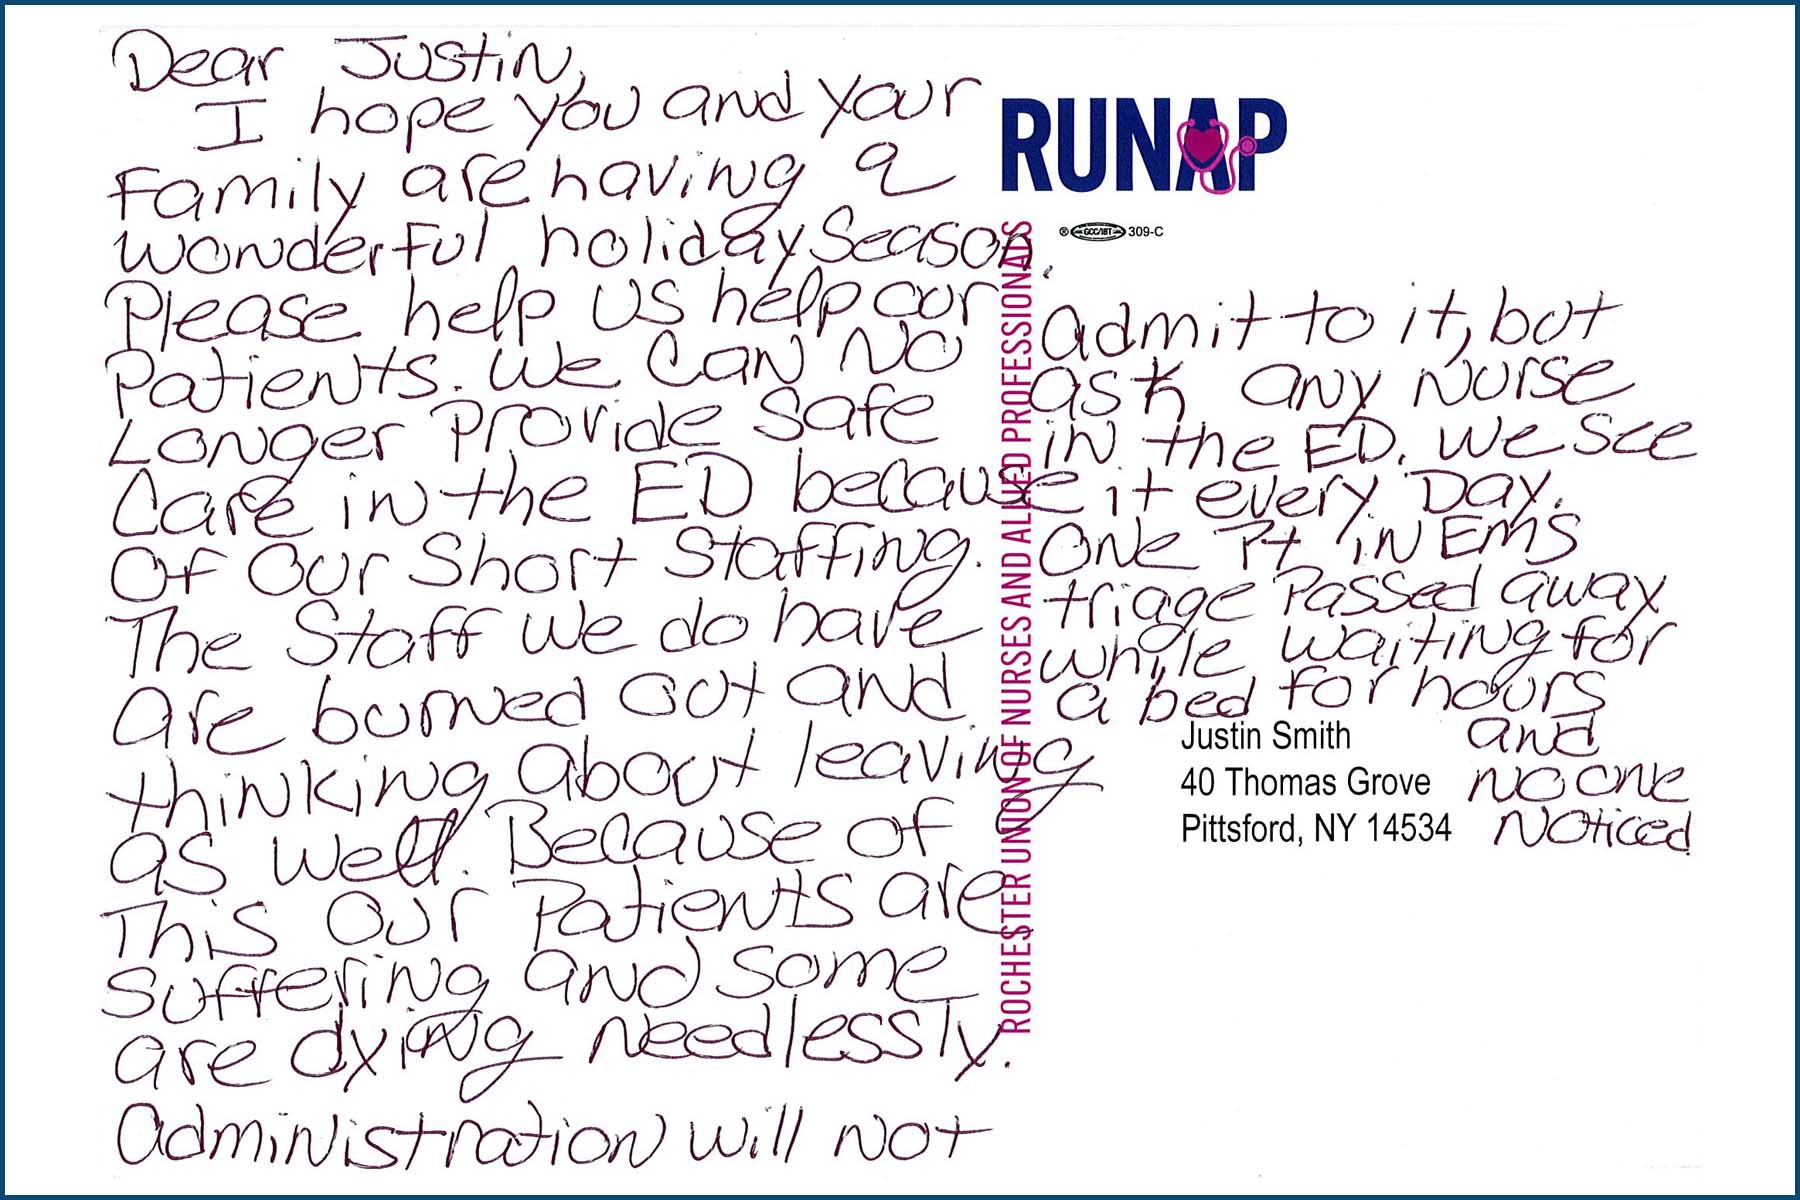 Dear Justin,
I hope you and your
family are having a
wonderful holiday season.
Please help us help our
patients. We can no
longer provide safe
care in the ED because
of our short staffing.
The staff we do have
are burned out and
thinking about leaving
as well. Because of
this our patients are
suffering and some
are dying needlessly.
Administration will not
RUNAP
® GCC/IBT 309-C
ROCHESTER UNION OF NURSES AND ALLIED PROFESSIONALS
admit to it, but
ask any nurse
in the ED. We see
it every day.
One pt in EMS
triage passed away
while waiting for
a bed for hours
and
no one
noticed
Justin Smith
40 Thomas Grove
Pittsford, NY 14534